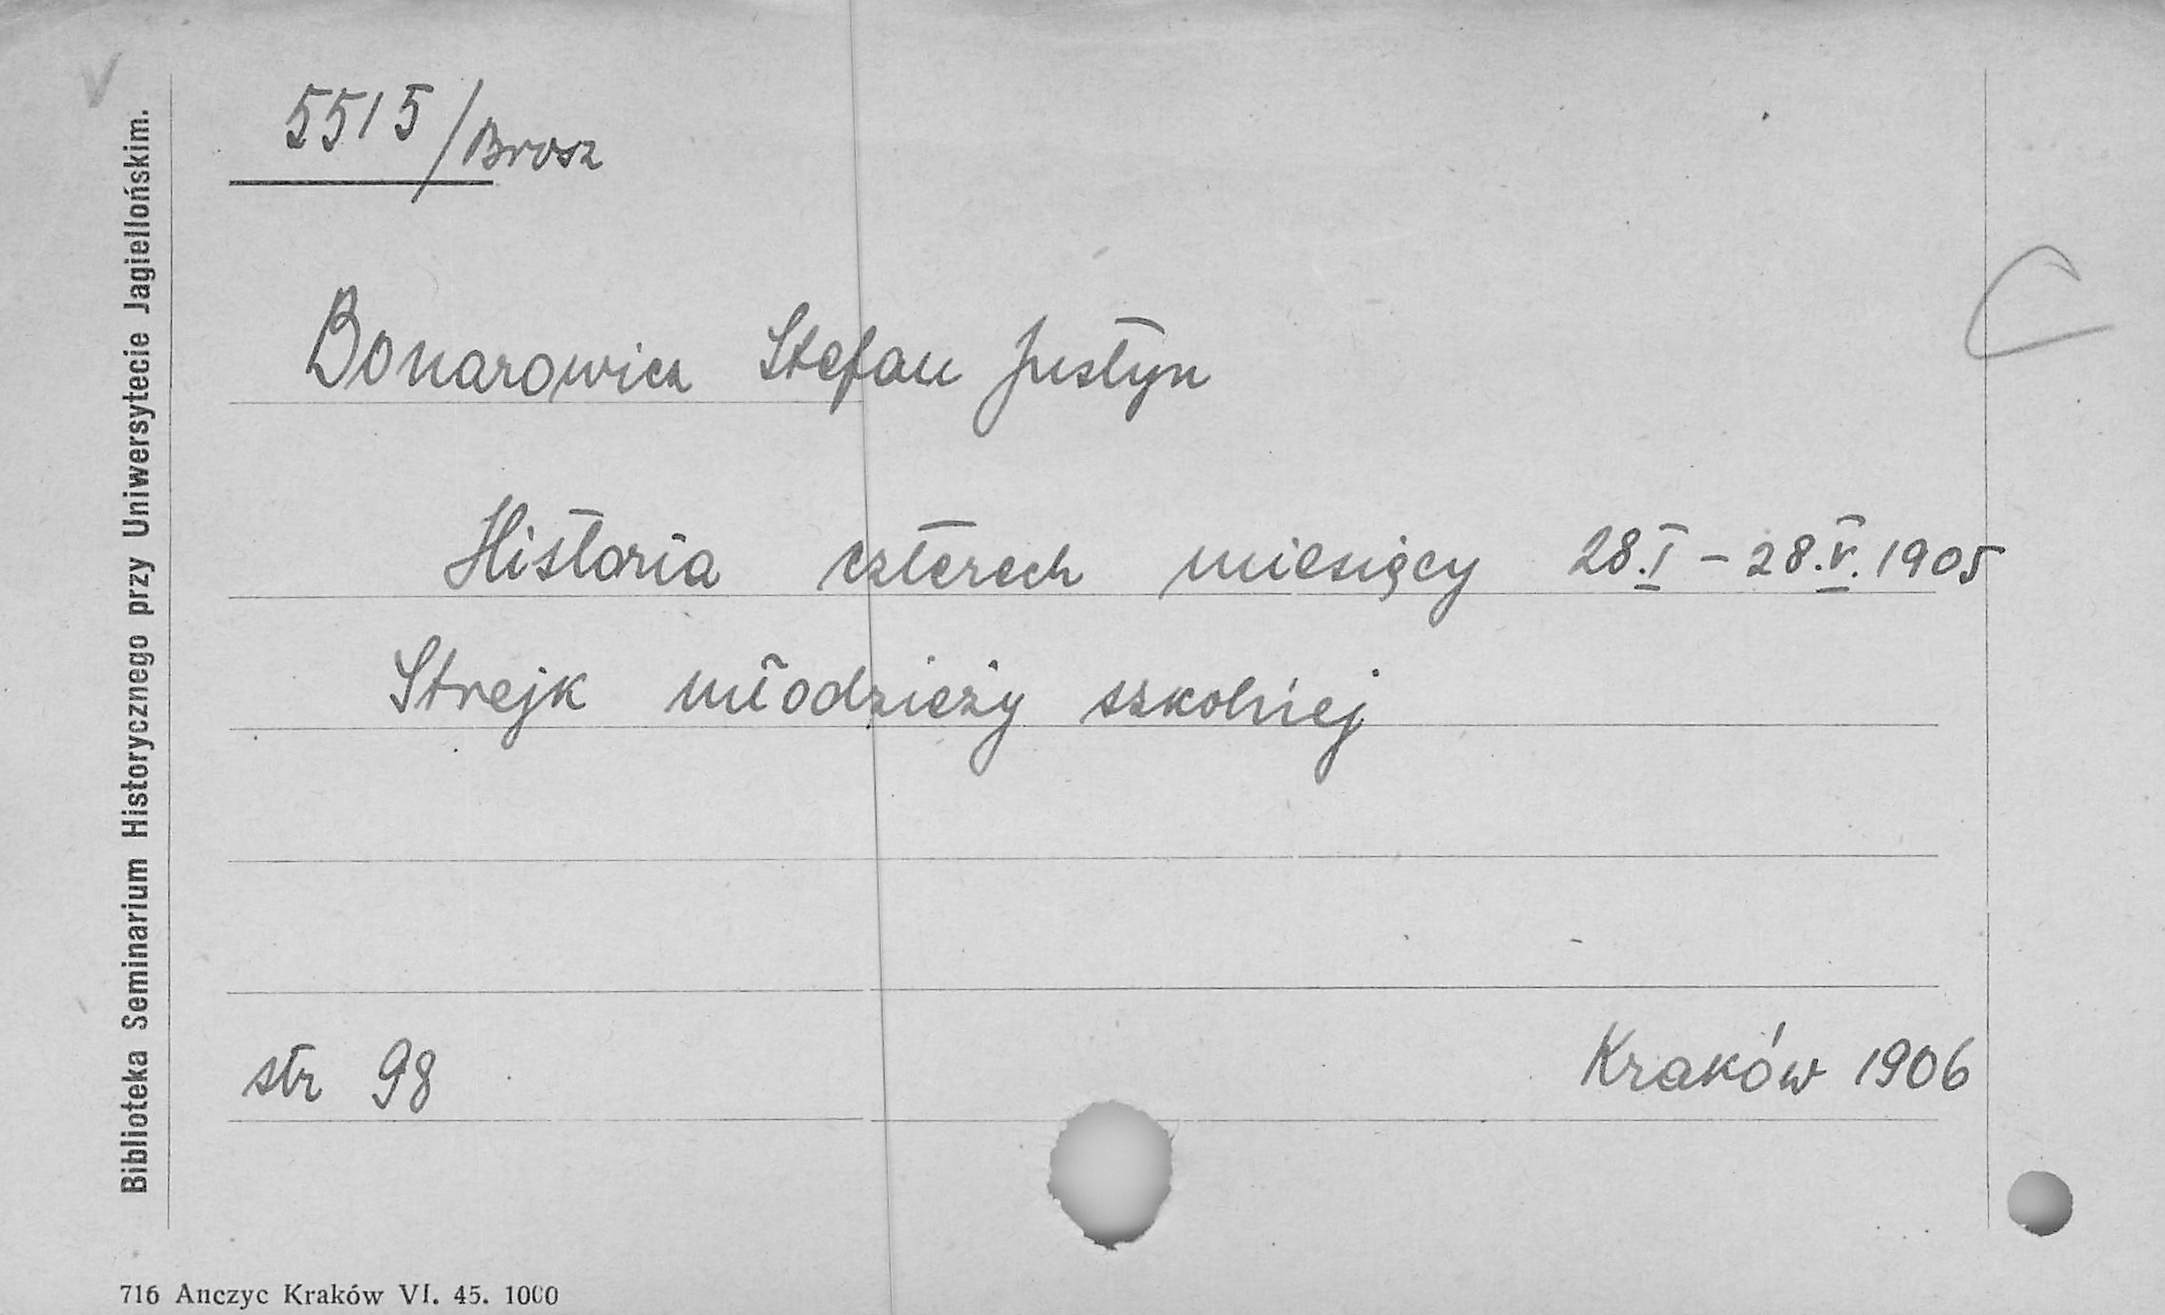 5515/Brosz
Bonarowicz Stefan Justyn
Historia czterech miesięcy 28.I – 28.V. 1905
Strejk młodzieży szkolnej
str 98
Kraków 1906
Biblioteka Seminarium Historycznego przy Uniwersytecie Jagiellońskim.
716 Anczyc Kraków VI. 45. 1000